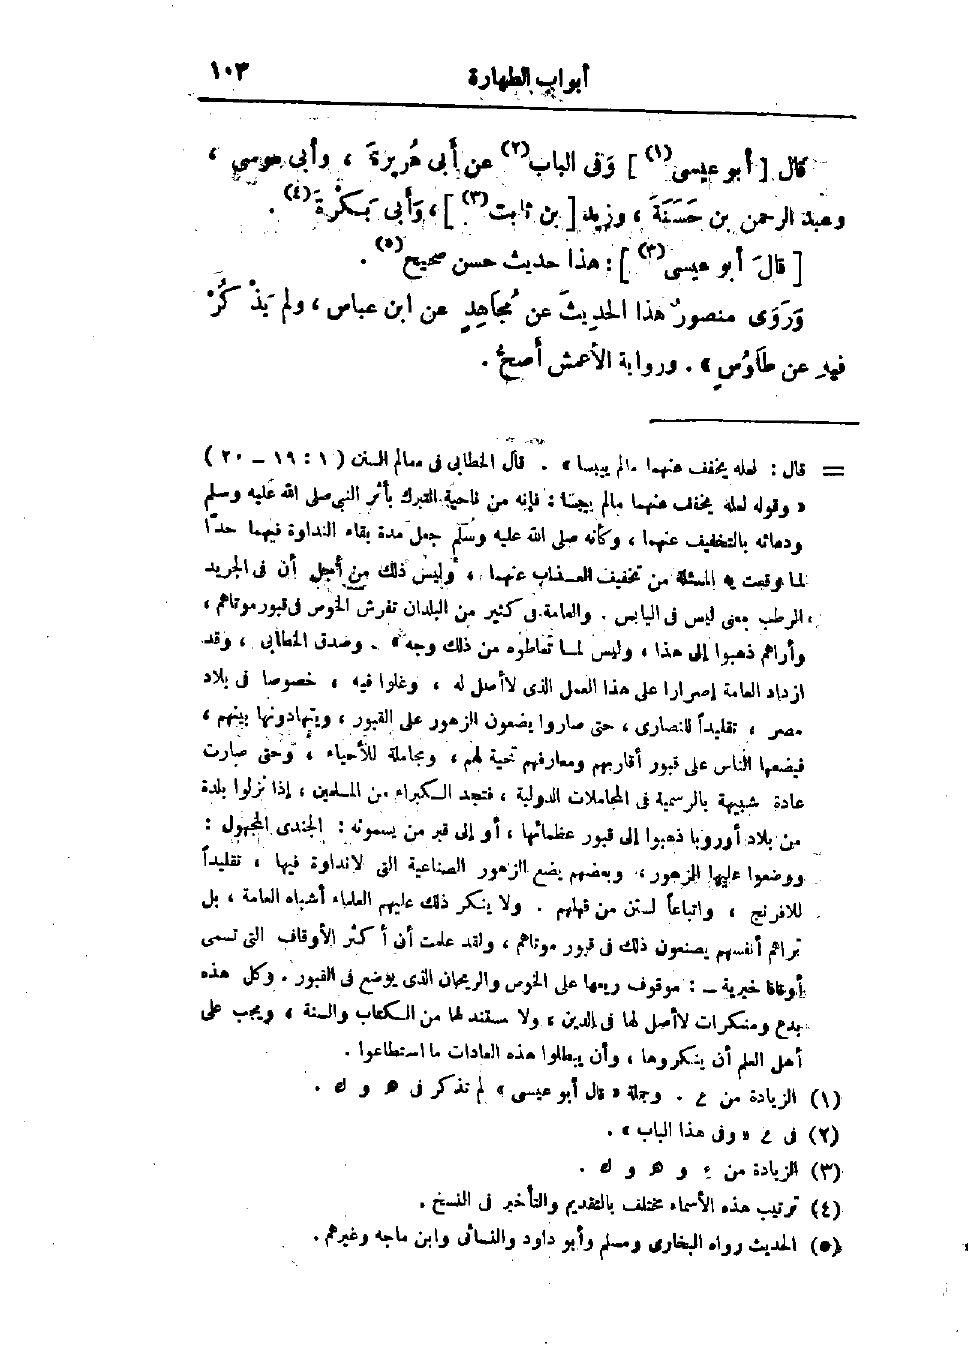 أبواب الطهارة ١٠٣
قال [ أبو عيسى (١) ] وَفى الباب (٢) عن أبى هُريرةَ ، وأبى موسى ،
وعبد الرحمن بن حَسَنَةَ ، وزيد [ بن ثابت (٣) ] ، وَأبى بَكْرَةَ (٤) .
[ قالَ أبو عيسى (٣) ] : هذا حديث حسن صحيح (٥) .
وَرَوَى منصورٌ هذا الحديثَ عن مُجاهِدٍ عن ابن عباس ، ولم يَذْكُرْ
فيه عن طاَوُسٍ » . ورواية الأعمش أصحُّ .
= قال : لعله يخفف عنهما مالم ييبسا » . قال الخطابى فى معالم السنن ( ١ : ١٩ ــ ٢٠ )
« وقوله لعله يخفف عنهما مالم ييبسا : فإنه من ناحية التبرك بأثر النبى صلى الله عليه وسلم
ودعائه بالتخفيف عنهما ، وكأنه صلى الله عليه وسلم جعل مدة بقاء النداوة فيهما حدّا
لما وقعت به المسئلة من تخفيف العذاب عنهما ، وليس ذلك من أجل أن فى الجريد
الرطب معنى ليس فى اليابس . والعامة فى كثير من البلدان تفرش الخوص فى قبور موتاهم ،
وأراهم ذهبوا إلى هذا ، وليس لما تعاطوه من ذلك وجه » . وصدق الخطابى ، وقد
ازداد العامة إصرارا على هذا العمل الذى لاأصل له ، وغلوا فيه ، خصوصا فى بلاد
مصر ، تقليداً للنصارى ، حتى صاروا يضعون الزهور على القبور ، ويتهادونها بينهم ،
فيضعها الناس على قبور أقاربهم ومعارفهم تحية لهم ، ومجاملة للأحياء ، وحتى صارت
عادة شبيهة بالرسمية فى المجاملات الدولية ، فتجد الكبراء من المسلمين ، إذا نزلوا بلدة
من بلاد أوروبا ذهبوا إلى قبور عظمائها ، أو إلى قبر من يسمونه : الجندى المجهول :
ووضعوا عليها الزهور ، وبعضهم يضع الزهور الصناعية التى لانداوة فيها ، تقليداً
للافرنج ، واتباعاً لسنن من قبلهم . ولا ينكر ذلك عليهم العلماء أشباه العامة ، بل
تراهم أنفسهم يصنعون ذلك فى قبور موتاهم ، ولقد علمت أن أكثر الأوقاف التى تسمى
أوقافا خيرية ــ : موقوف ريعها على الخوص والريحان الذى يوضع فى القبور . وكل هذه
بدع ومنكرات لاأصل لها فى الدين ، ولا مستند لها من الكتاب والسنة ، ويجب على
أهل العلم أن ينكروها ، وأن يبطلوا هذه العادات ما استطاعوا .
(١) الزيادة من ع . وجملة « قال أبو عيسى » لم تذكر فى هـ و ك .
(٢) فى ع « وفى هذا الباب » .
(٣) الزيادة من ع و هـ و ك .
(٤) ترتيب هذه الأسماء مختلف بالتقديم والتأخير فى النسخ .
(٥) الحديث رواه البخارى ومسلم وأبو داود والنسائى وابن ماجه وغيرهم .